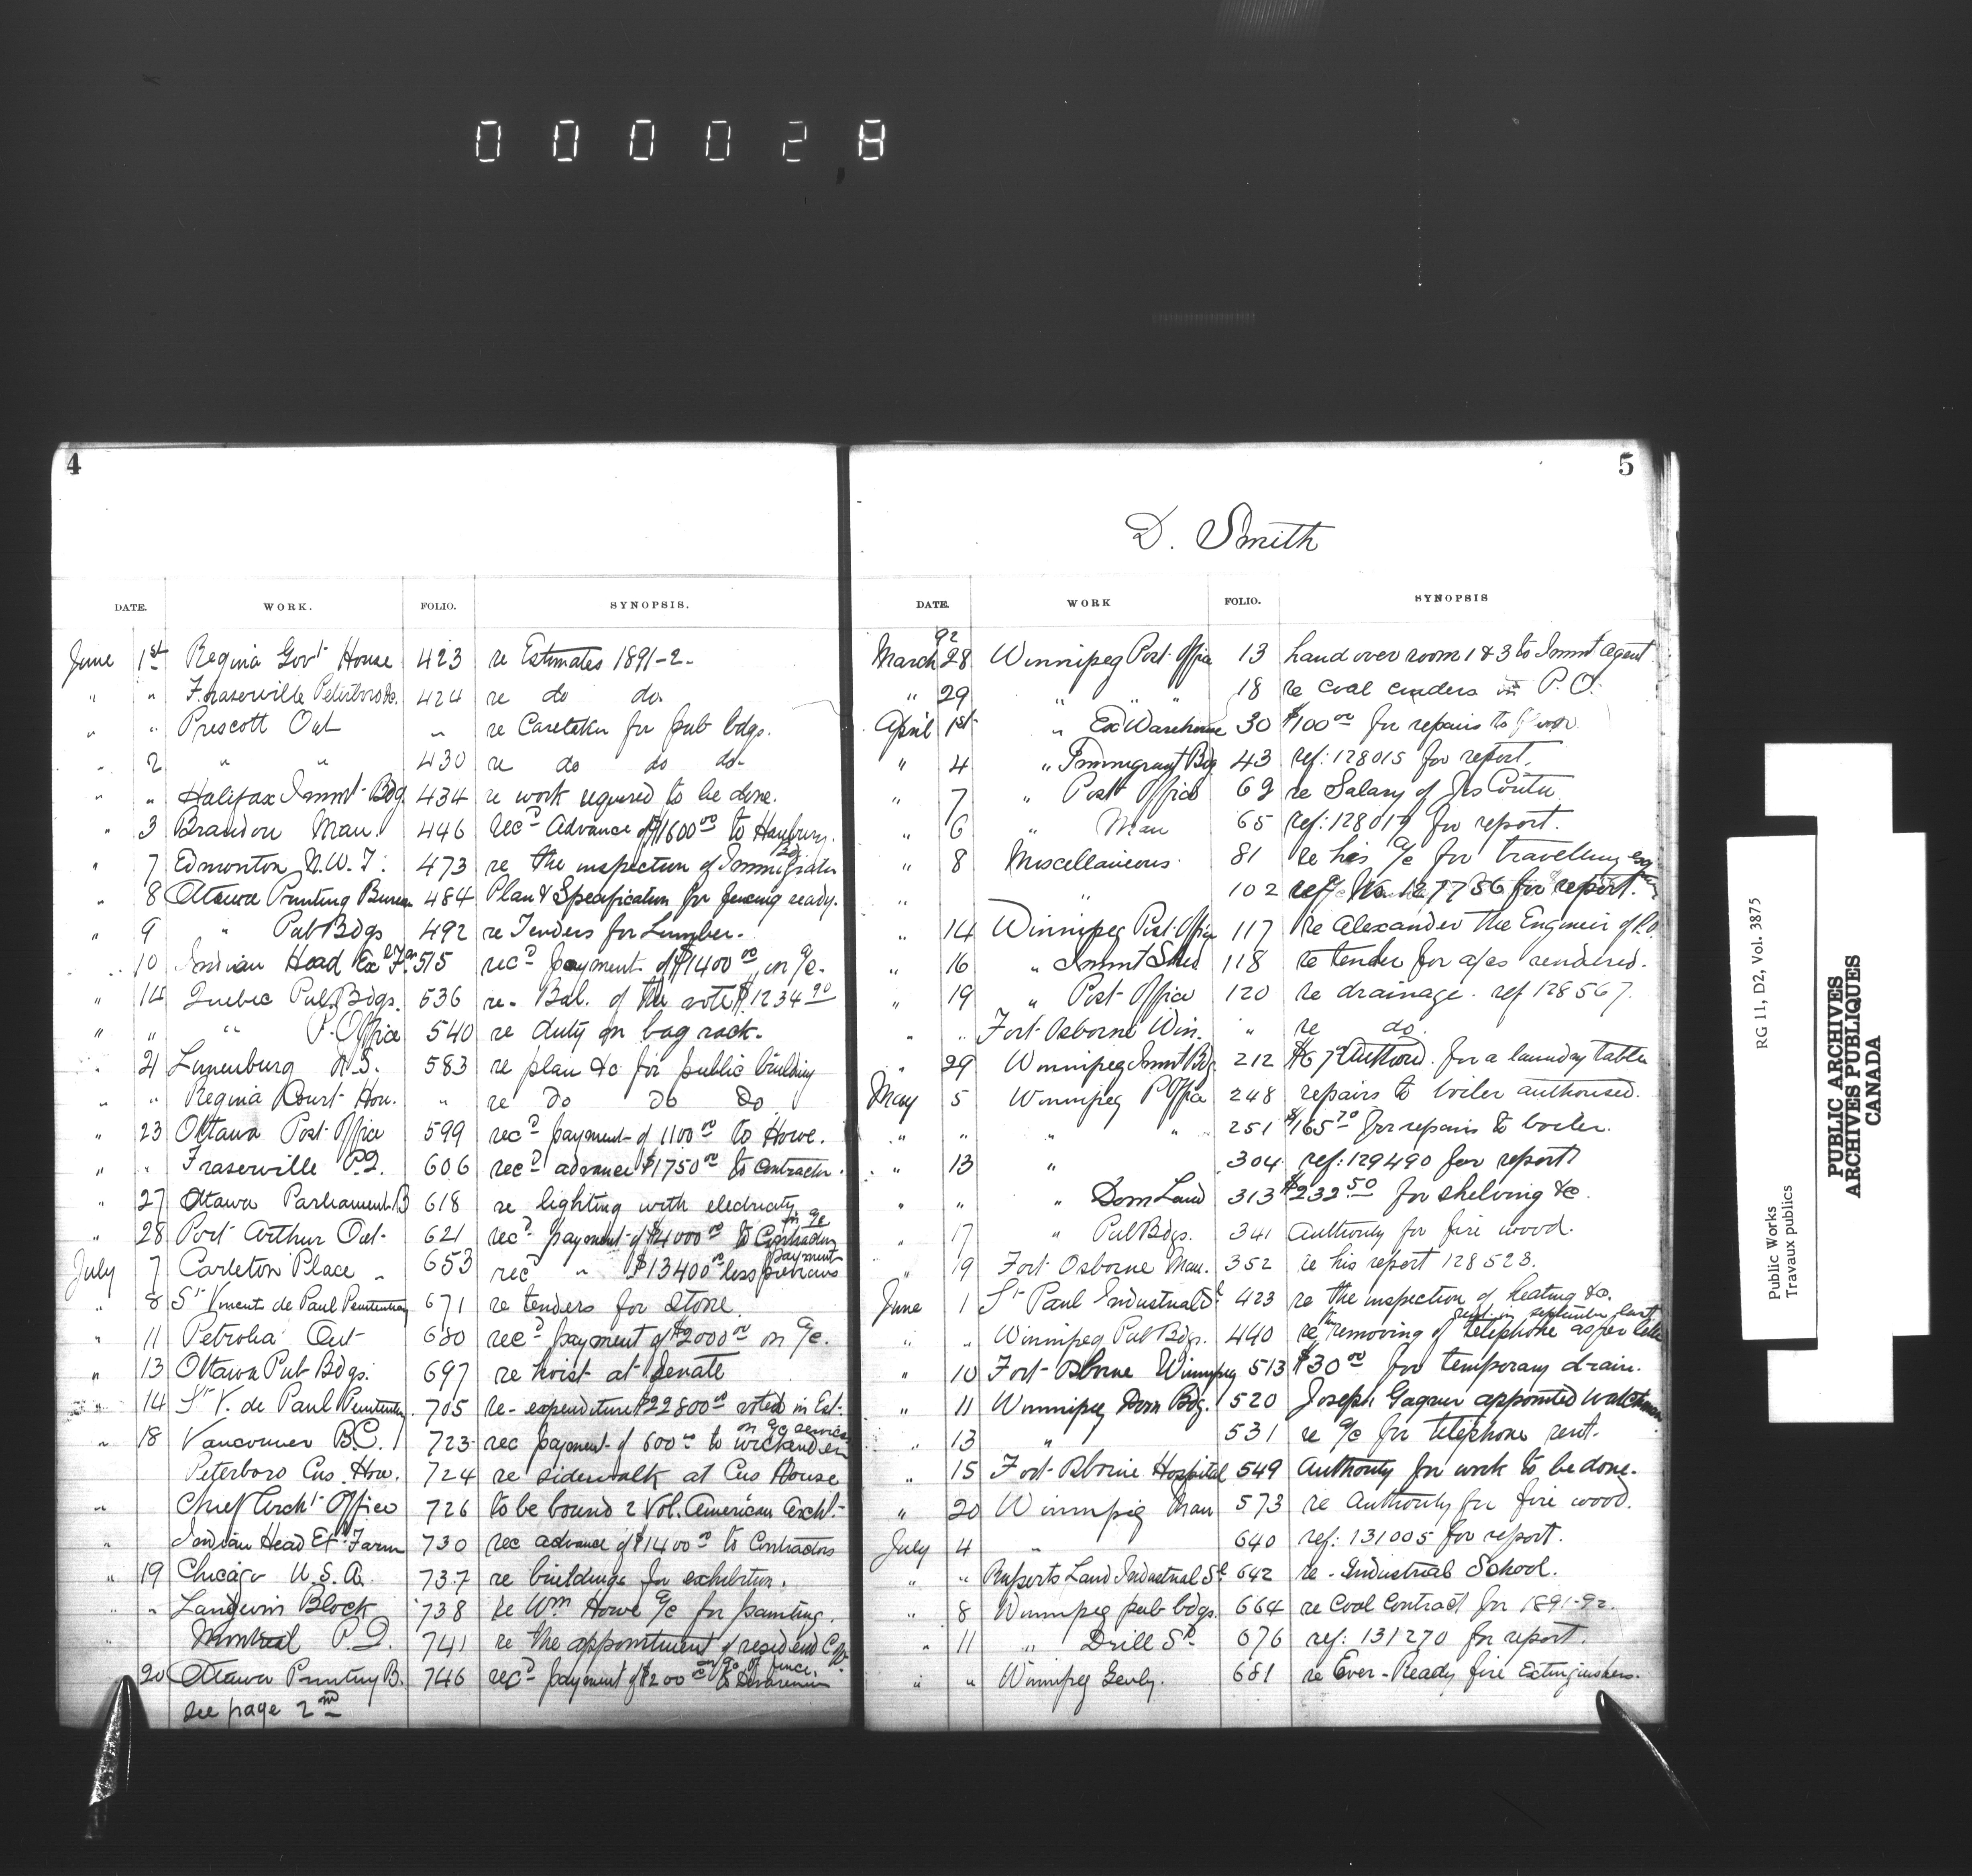 000028
4
DATE. WORK. FOLIO. SYNOPSIS.
June 1st Regina Govt House 423 re Estimates 1891-2-
" " Fraserville Peterboro &c. 424 re do do.
" " Prescott Ont " re Caretaker for pub bdgs.
" 2 " " 430 re do do do-
" " Halifax Immt Bdg 434 re work required to be done.
" 3 Brandon Man. 446 recd Advance of $1600 00 to Hanbury.
" 7 Edmonton N.W.T. 473 re the inspection of Immigration Bdg
" 8 Ottawa Printing Bureau 484 Plan & Specification for fencing ready.
" 9 " Pub Bdgs 492 re Tenders for Lumber-
" 10 Indian Head Exl Fm 515 recd payment of $1400 00 on a/c-
" 14 Quebec Pub. Bdgs. 536 re- Bal. of the vote $1234 90
" " " P. Office 540 re duty on bag rack-
" 21 Lunenburg N.S. 583 re plan &c for public building
" " Regina Court Hou. " re Do Do Do
" 23 Ottawa Post Office 599 recd payment of 1100 00 to Howe.
" " Fraserville P.Q. 606 recd advance $1750 00 to Contractor.
" 27 Ottawa Parliament B 618 re lighting with electricity
" 28 Port Arthur Ont- 621 recd payment of $4000 00 to Contractor on a/c
July 7 Carleton Place " 653 recd " $13400 00 less previous payments
" 8 St Vincent de Paul Penitentiary 671 re tenders for stone.
" 11 Petrolia Ont 680 recd payment of $2000 00 on a/c.
" 13 Ottawa Pub Bdgs. 697 re hoist at Senate
" 14 St V. de Paul Penitentiary 705 re- expenditure $22800 00 voted in Est-
" 18 Vancouver B.C. 723 rec payment of 600 00 to on a/c services
Peterboro Cus. Hou. 724 re sidewalk at Cus House
" Chief Archt Office 726 to be bound 2 Vol. American Archt-
" Indian Head Exl Farm 730 rec advance of $1400 00 to Contractors
" 19 Chicago U.S.A. 737 re buildings for exhibition.
" " Langevin Block 738 re Wm Howe a/c for painting.
" Montreal P.Q. 741 re the appointment of resident C of W.
" 20 Ottawa Printing B. 746 recd payment of $200 00 to on a/c of fence.
see page 2nd
5
D. Smith
DATE. WORK FOLIO. SYNOPSIS
92
March 28 Winnipeg Post Office 13 hand over room 1 & 3 to Immt Agent
" 29 " " " 18 re coal cinders in P.O.
April 1st " Ex Warehouse 30 $100 00 for repairs to
" 4 " Immigrant Bdg 43 ref: 128015 for report.
" 7 " Post Office 62 re Salary of Jos Coutu
" 6 " Man 65 ref: 128017 for report.
" 8 Miscellaneous 81 re his a/c for travelling exp
" " 102 ref a/c No. 127756 for report.
" 14 Winnipeg Post Office 117 re Alexander the Engineer of P.O.
" 16 " Immt Shed 118 re tender for a/cs rendered.
" 19 " Post Office 120 re drainage. ref 128567.
" " Fort Osborne Win. " re do.
" 29 Winnipeg Immt Bdg 212 $67 00 Authord. for a laundry table
May 5 Winnipeg P Office 248 repairs to boiler authorised.
" " " " 251 $165 70 for repairs to boiler.
" 13 " 304 ref: 129490 for report
" " " Dom Land 313 $232.50 for shelving &c.
" 17 " Pub Bdgs. 341 Authority for fire wood.
" 19 Fort Osborne Man. 352 re his report 128528.
June 1 St Paul Industrial S. 423 re the inspection of heating &c.
" " Winnipeg Pub Bdgs. 440 re the removing of telephone as per letter sent in September last
" 10 Fort Osborne Winnipeg 513 $30 00 for temporary drain.
" 11 Winnipeg Dom Bdg. 520 Joseph Gagner appointed watchman
" 13 " 531 re a/c for telephone rent.
" 15 Fort Osborne Hospital 549 Authority for work to be done-
" 20 Winnipeg Man 573 re Authority for fire wood.
July 4 " 640 ref: 131005 for report.
" " Ruperts Land Industrial Sl 642 re- Industrial School.
" 8 Winnipeg pub bdgs. 664 re Coal Contract for 1891-92.
" 11 " Drill Sd 676 ref: 131270 for report.
" " Winnipeg Genly. 681 re Ever-Ready fire Extinguishers.
RG 11, D2, Vol. 3875
Public Works
Travaux publics
PUBLIC ARCHIVES
ARCHIVES PUBLIQUES
CANADA